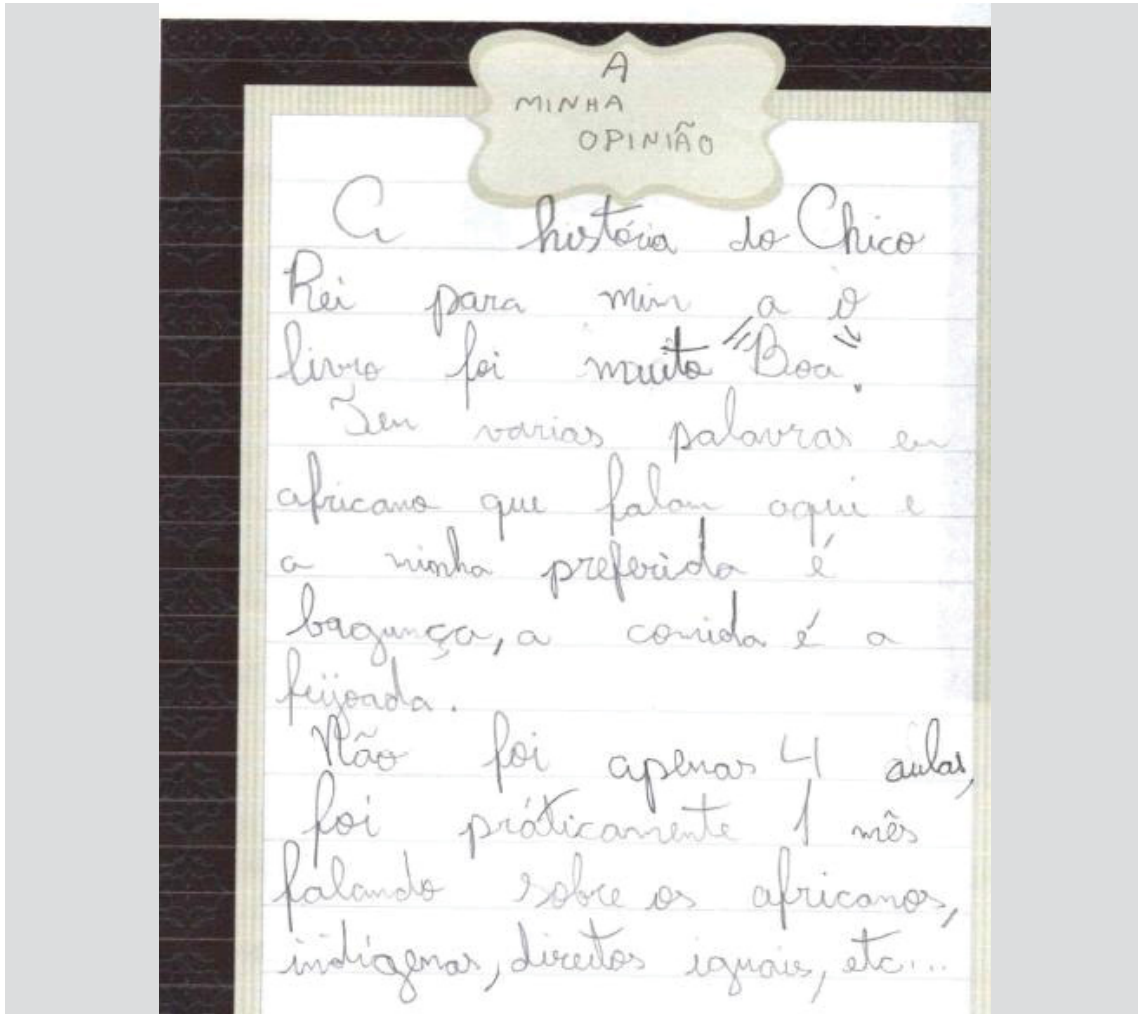 A
MINHA
OPINIÃO
A história do Chico
Rei para min a o
livro foi muito "Boa".
Tem varias palavras en
africano que falam aqui e
a minha preferida é
bagunça, a comida é a
feijoada.
Não foi apenas 4 aulas,
foi práticamente 1 mês
falando sobre os africanos,
indígenas, direitos iguais, etc...